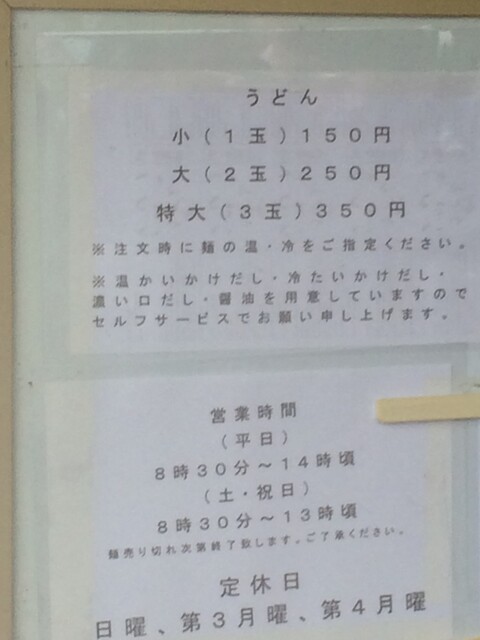 うどん
小(1玉)150円
大(2玉)250円
特大(3玉)350円
※注文時に麺の温・冷をご指定ください。
※温かいかけだし・冷たいかけだし・
濃い口だし・醤油を用意していますので
セルフサービスでお願い申し上げます。
営業時間
(平日)
8時30分～14時頃
(土・祝日)
8時30分～13時頃
麺売り切れ次第終了致します。ご了承ください。
定休日
日曜、第3月曜、第4月曜